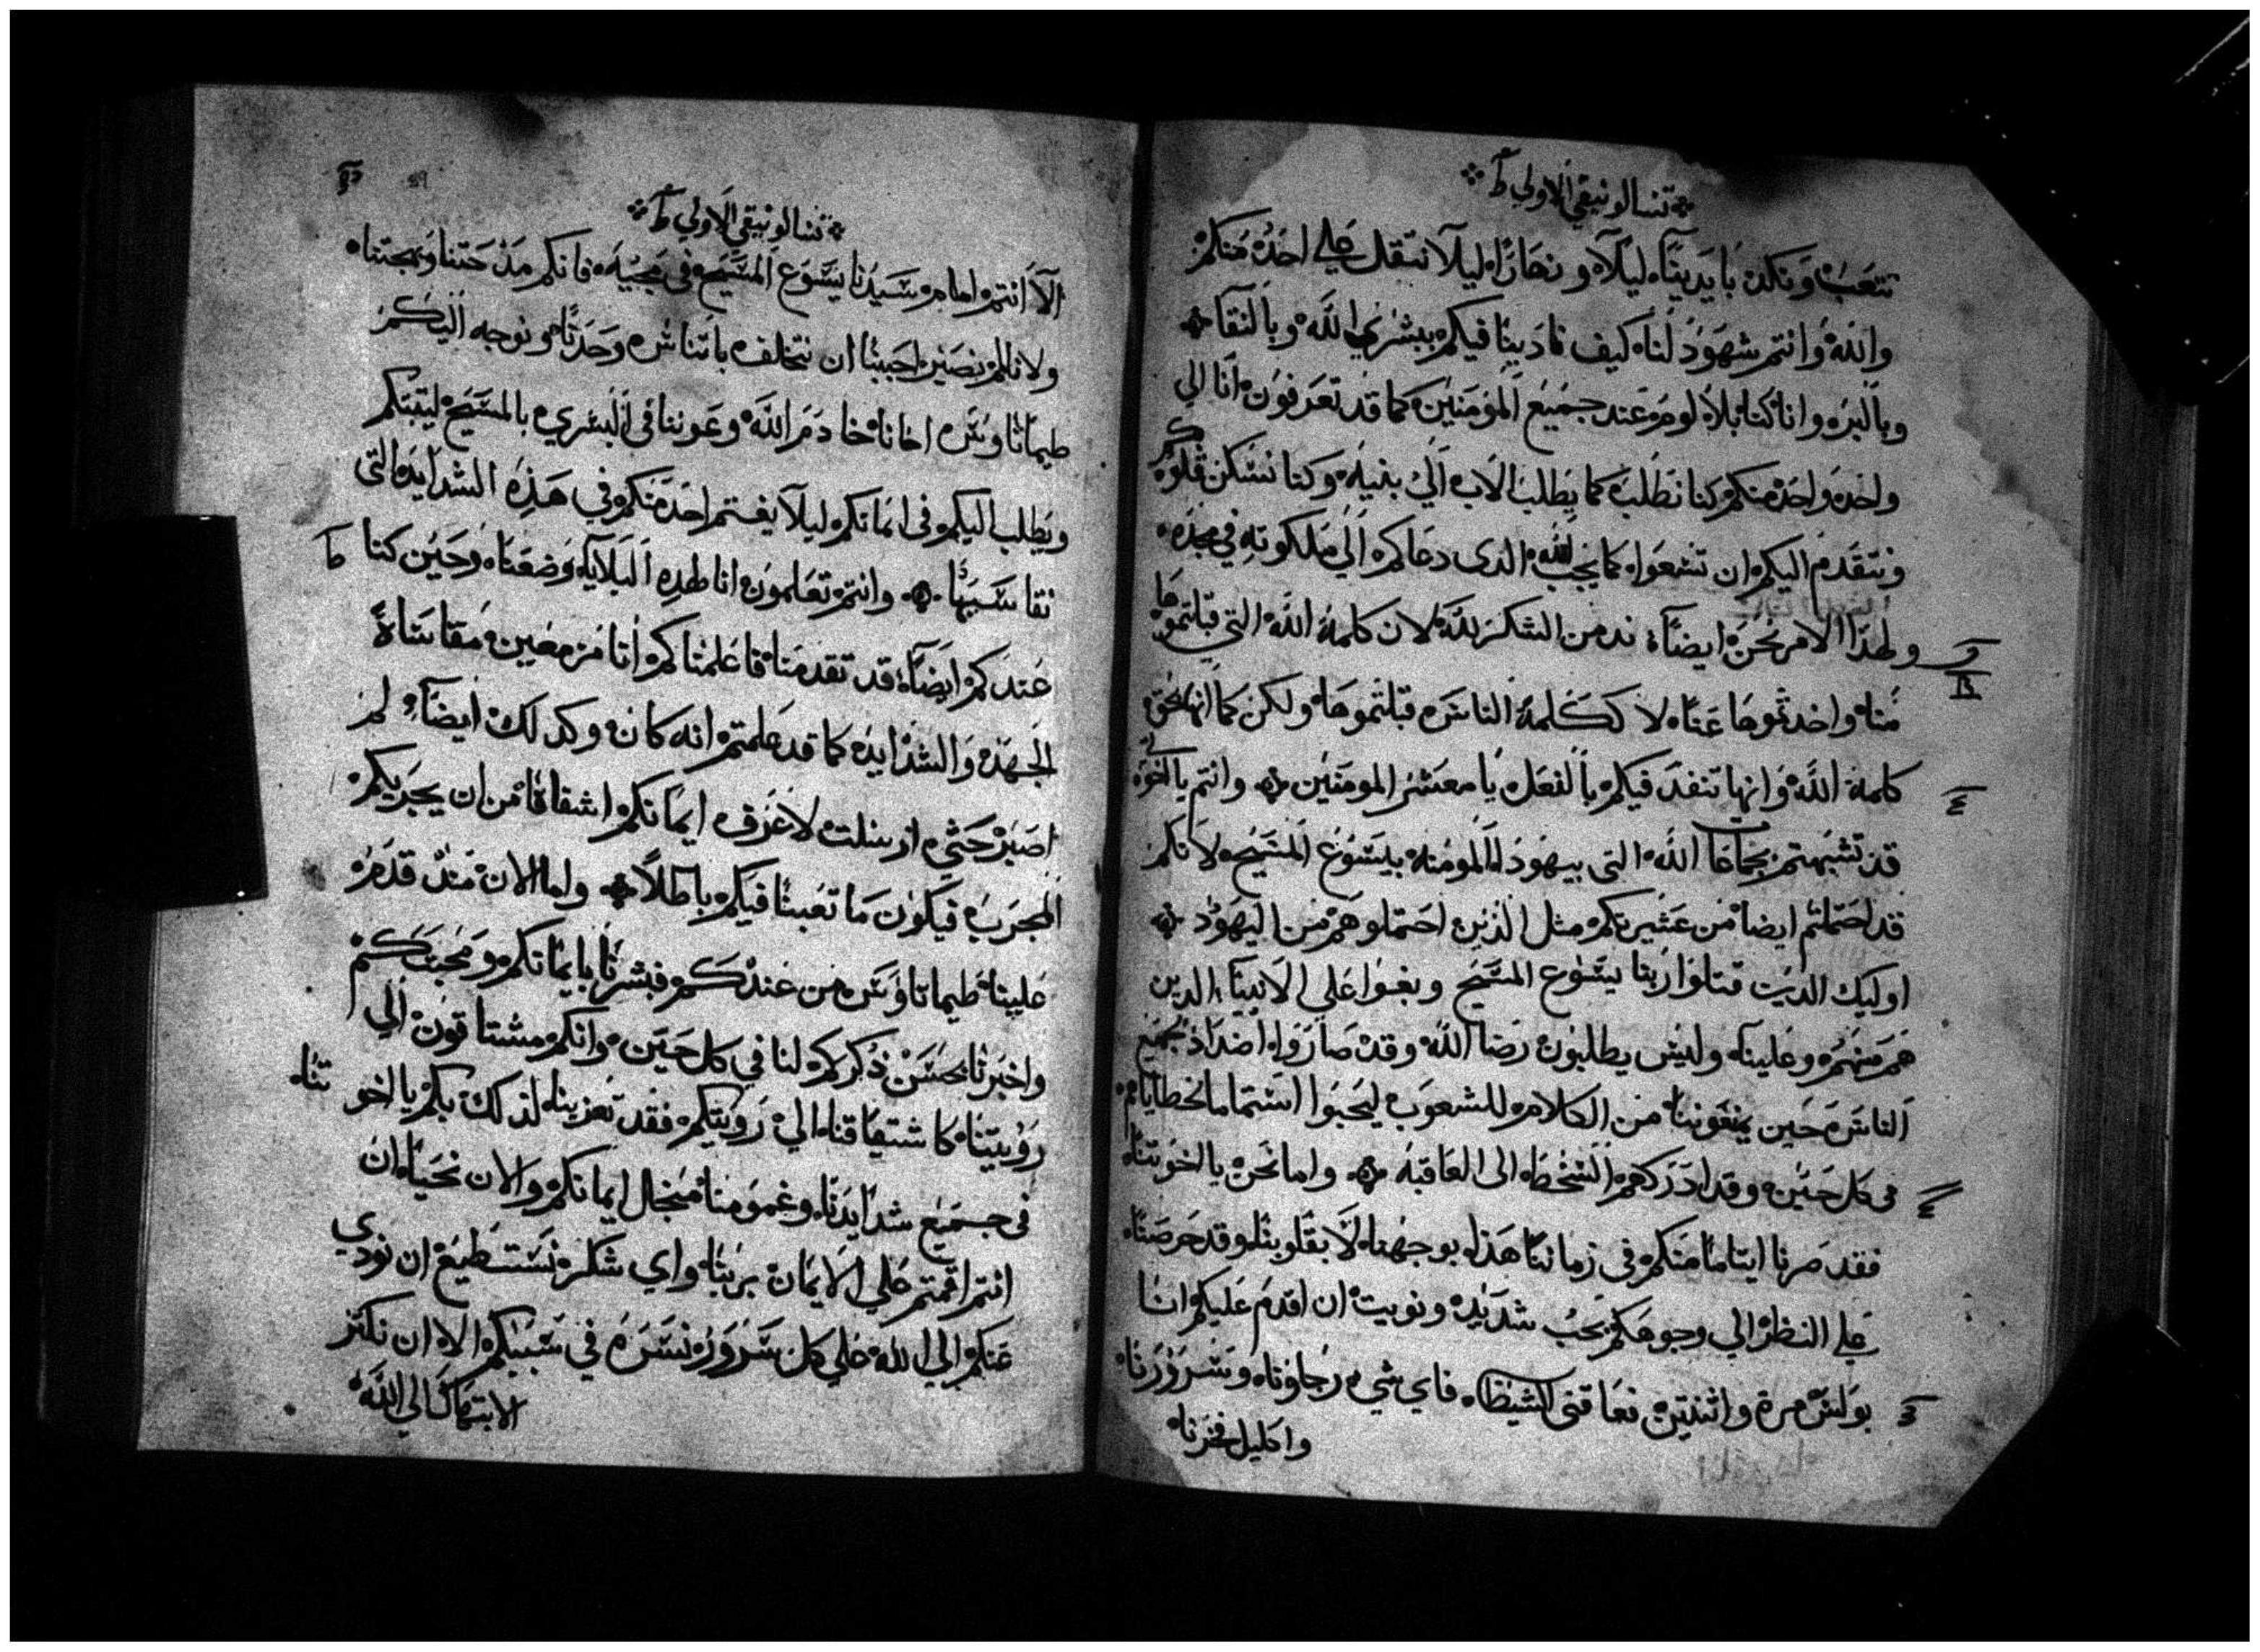 تسالونيقي الاولي ط
نتعب ونكد بايدينا ليلا ونهارا ليلا نتقل علي احد منكم
والله وانتم شهود لنا كيف نادينا فيكم ببشري الله وبالنقا
وبالبر وانا كنا بلا لوم عند جميع المومنين كما قد تعرفون انا الي
واحد واحد منكم كنا نطلب كما يطلب الاب الي بنيه وكنا نسكن قلوبكم
ونتقدم اليكم ان تسعوا كما يجب لله الدى دعاكم الي ملكوته في مجده
ولهذا الامر نحن ايضا ندمن الشكر لله لان كلمة الله التي قبلتموها
منا واخدتموها عنا لا ككلمة الناس قبلتموها ولكن كما انها بحق
كلمة الله وانها تنفد فيكم بالفعل يا معشر المومنين وانتم يا اخوة
قد تشبهتم بجماعا الله التى بيهودا المومنه بيسوع المسيح لانكم
قد احتملتم ايضا من عشيرتكم مثل الذين احتملوهم من اليهود
اوليك الدين قتلوا ربنا يسوع المسيح وبغوا علي الانبيا الدين
هم منهم وعلينا وليس يطلبون رضا الله وقد صاروا اضدادا لجميع
الناس حين يمنعوننا من الكلام للشعوب ليحيوا استتماما لخطاياهم
فى كل حين وقد ادركهم السخط الى العاقبة واما نحن يا اخوتنا
فقد صرنا ايتاما منكم فى زماننا هذا بوجهنا لا بقلوبنا وقد حرصنا
علي النظر الي وجوهكم بحب شديد ونويت ان اقدم عليكم انا
بولس مرة واثنتين فعاقنى الشيطان فاي شي رجاونا وسرورنا
واكليل فخرنا
تسالونيقي الاولي ط
الا انتم امام سيدنا يسوع المسيح فى مجيه فانكم مدحتنا وبهجتنا
ولانا لم نصبر احببنا ان نتخلف باتناس وحدنا ونوجه اليكم
طيماتاوس اخانا خادم الله وعوننا فى البشري بالمسيح ليتبتكم
ويطلب اليكم فى ايمانكم ليلا يغتم احد منكم في هذه الشدايد التى
نقاسيها وانتم تعلمون انا لهده البلايا وضعنا وحين كنا
عندكم ايضا قد تقدمنا فاعلمناكم انا مزمعين مقاساة
الجهد والشدايد كما قد علمتم انه كان وكدلك ايضا لم
اصبر حتي ارسلت لاعرف ايمانكم اشفاقا من ان يجربكم
المجرب فيكون ما تعبنا فيكم باطلا واما الان مند قدم
علينا طيماتاوس من عندكم فبشرنا بايمانكم ومحبتكم
واخبرنا بحسن ذكركم لنا في كل حين وانكم مشتاقون الي
رويتنا كاشتياقنا الي رويتكم فقد تعزينا لذلك بكم يا اخوتنا
فى جميع شدايدنا وغمومنا من جال ايمانكم والان نحيا ان
انتم اقمتم علي الايمان بربنا واي شكر نستطيع ان نودي
عنكم الي الله علي كل سرور نسر في سببكم الا ان نكتر
الابتهال الي الله